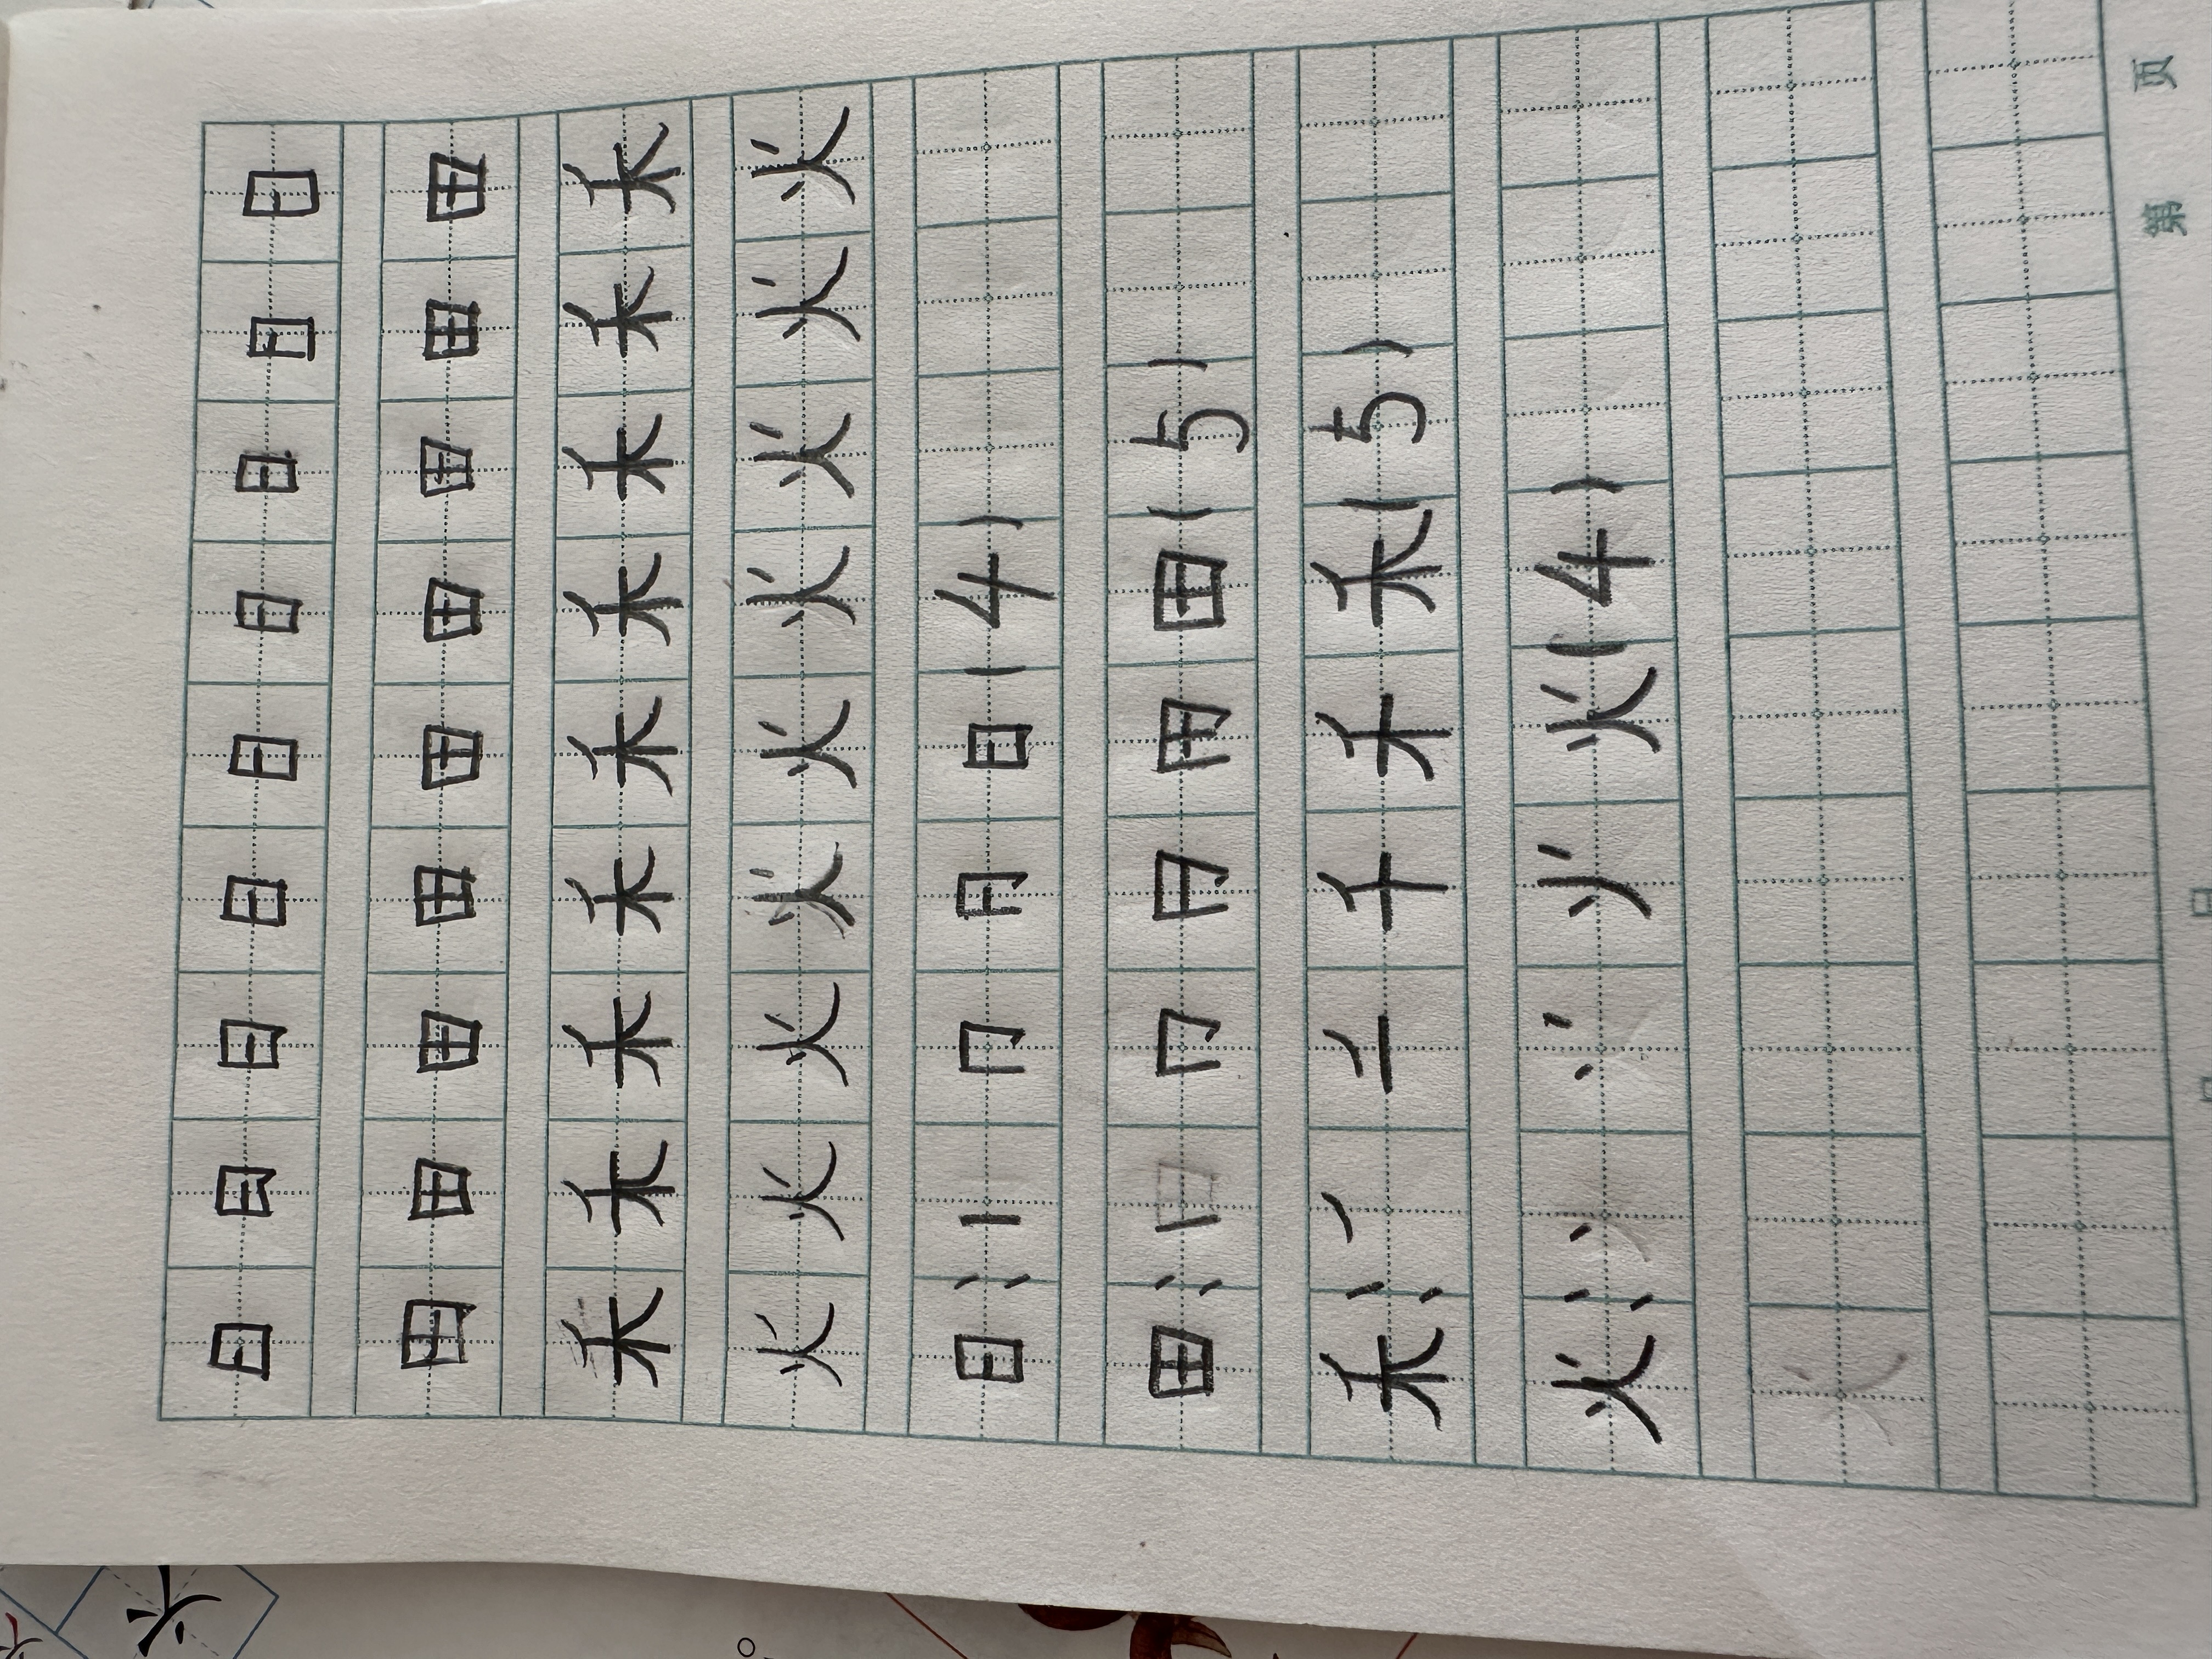 日日日日日日日日日
田田田田田田田田田
禾禾禾禾禾禾禾禾禾
火火火火火火火火火
日：丨冂冃日(4)
田：丨冂冃用田(5)
禾：丿二千禾(5)
火：丶丷火(4)
第 页